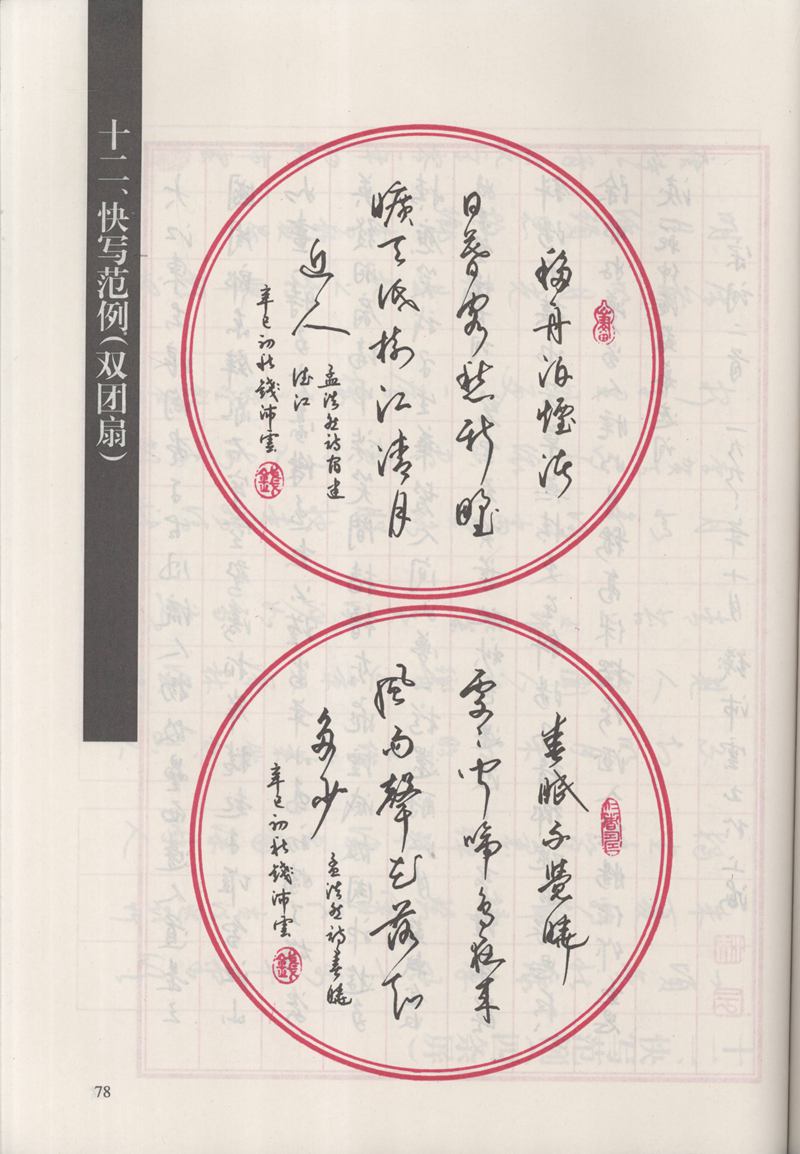 十二、快写范例(双团扇)
移舟泊烟渚
日暮客愁新 野
旷天低树江清月
近人
孟浩然诗宿建
德江
辛巳初秋钱沛云
春眠不觉晓
处处闻啼鸟夜来
风雨声花落知
多少
孟浩然诗春晓
辛巳初秋钱沛云
78